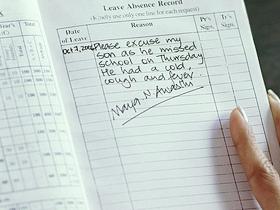 Leave Absence Record
(Kindly use only one line for each request)
Date of Leave
Reason
Pr's Sign.
Tr's Sign.
Please excuse my
son as he missed
school on Thursday
He had a cold,
cough and fever.